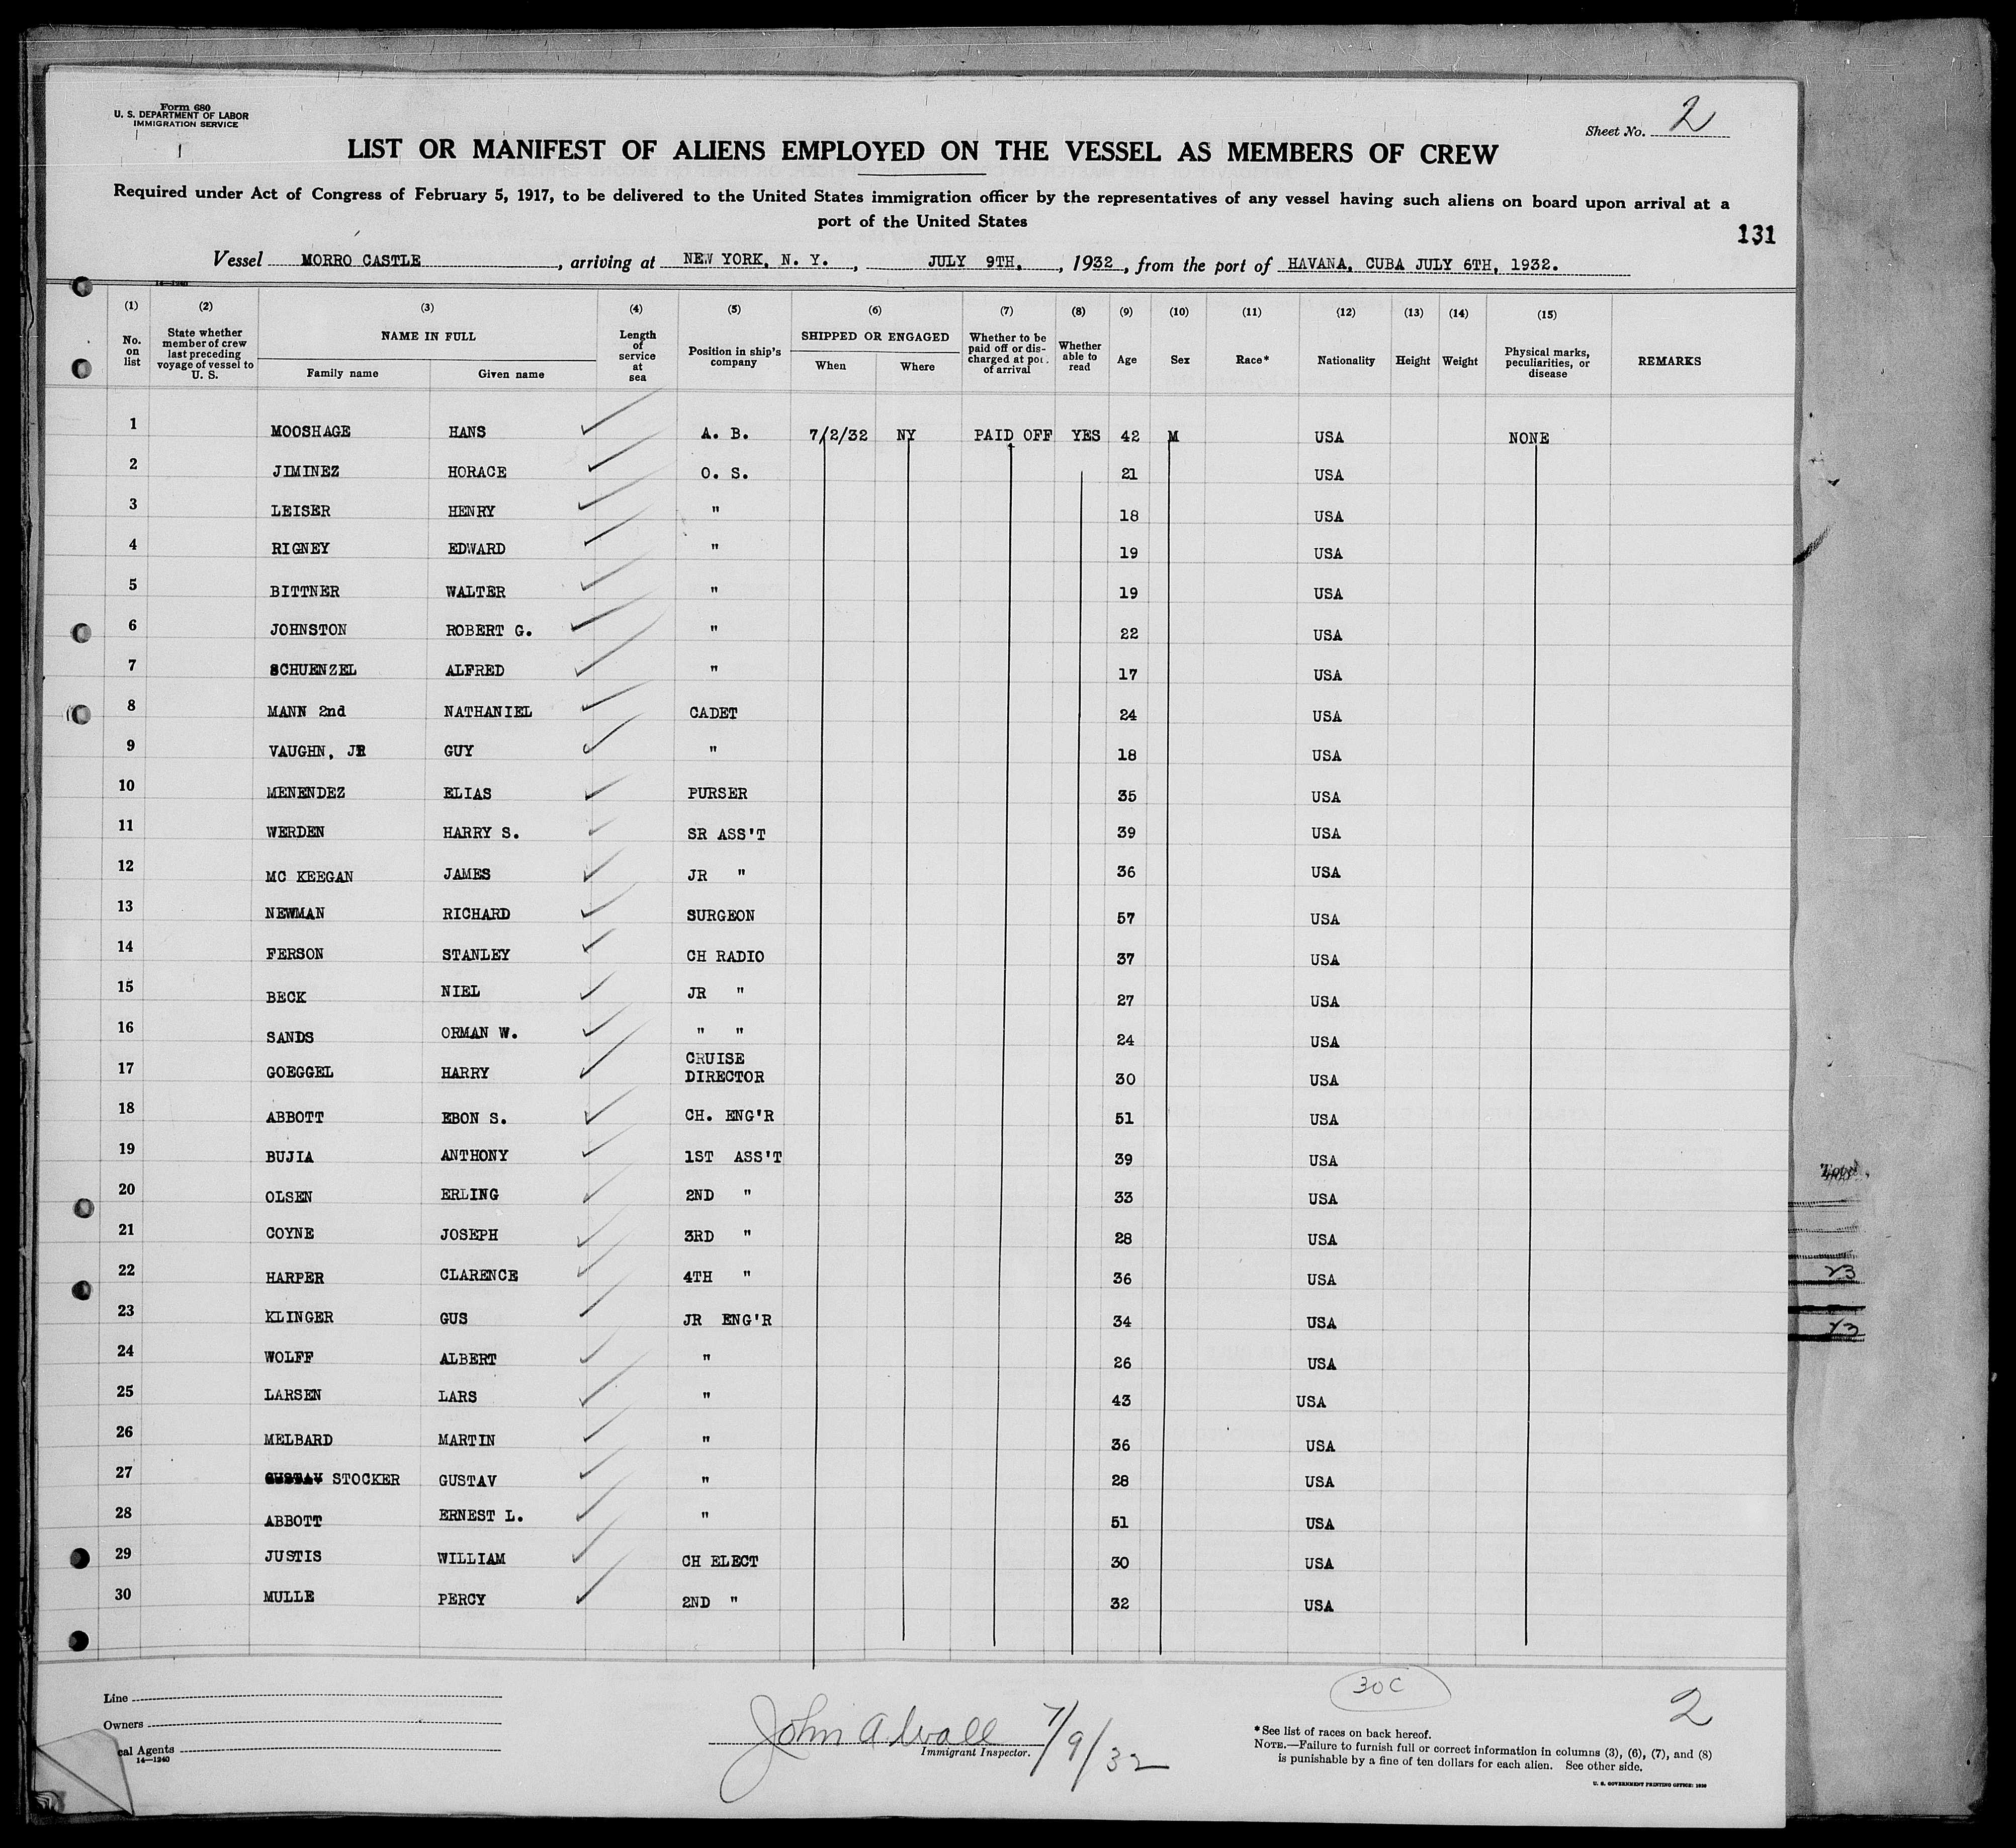 Form 680
U. S. DEPARTMENT OF LABOR
IMMIGRATION SERVICE
Sheet No. 2
LIST OR MANIFEST OF ALIENS EMPLOYED ON THE VESSEL AS MEMBERS OF CREW
Required under Act of Congress of February 5, 1917, to be delivered to the United States immigration officer by the representatives of any vessel having such aliens on board upon arrival at a
port of the United States
131
Vessel MORRO CASTLE, arriving at NEW YORK, N. Y., JULY 9TH, 1932, from the port of HAVANA, CUBA JULY 6TH, 1932.
14—1240
(1) (2) (3) (4) (5) (6) (7) (8) (9) (10) (11) (12) (13) (14) (15)
No. on list
State whether member of crew last preceding voyage of vessel to U. S.
NAME IN FULL
Family name
Given name
Length of service at sea
Position in ship's company
SHIPPED OR ENGAGED
When
Where
Whether to be paid off or discharged at port of arrival
Whether able to read
Age
Sex
Race*
Nationality
Height
Weight
Physical marks, peculiarities, or disease
REMARKS
1 MOOSHAGE HANS A. B. 7/2/32 NY PAID OFF YES 42 M USA NONE
2 JIMINEZ HORACE O. S. 21 USA
3 LEISER HENRY " 18 USA
4 RIGNEY EDWARD " 19 USA
5 BITTNER WALTER " 19 USA
6 JOHNSTON ROBERT G. " 22 USA
7 SCHUENZEL ALFRED " 17 USA
8 MANN 2nd NATHANIEL CADET 24 USA
9 VAUGHN, JR GUY " 18 USA
10 MENENDEZ ELIAS PURSER 35 USA
11 WERDEN HARRY S. SR ASS'T 39 USA
12 MC KEEGAN JAMES JR " 36 USA
13 NEWMAN RICHARD SURGEON 57 USA
14 FERSON STANLEY CH RADIO 37 USA
15 BECK NIEL JR " 27 USA
16 SANDS ORMAN W. " " 24 USA
17 GOEGGEL HARRY CRUISE DIRECTOR 30 USA
18 ABBOTT EBON S. CH. ENG'R 51 USA
19 BUJIA ANTHONY 1ST ASS'T 39 USA
20 OLSEN ERLING 2ND " 33 USA
21 COYNE JOSEPH 3RD " 28 USA
22 HARPER CLARENCE 4TH " 36 USA
23 KLINGER GUS JR ENG'R 34 USA
24 WOLFF ALBERT " 26 USA
25 LARSEN LARS " 43 USA
26 MELBARD MARTIN " 36 USA
27 GUSTAV STOCKER GUSTAV " 28 USA
28 ABBOTT ERNEST L. " 51 USA
29 JUSTIS WILLIAM CH ELECT 30 USA
30 MULLE PERCY 2ND " 32 USA
23
23
30C
2
Line
Owners
cal Agents
14—1240
John A Wall 7/9/32
Immigrant Inspector.
*See list of races on back hereof.
NOTE.—Failure to furnish full or correct information in columns (3), (6), (7), and (8)
is punishable by a fine of ten dollars for each alien. See other side.
U. S. GOVERNMENT PRINTING OFFICE: 1930